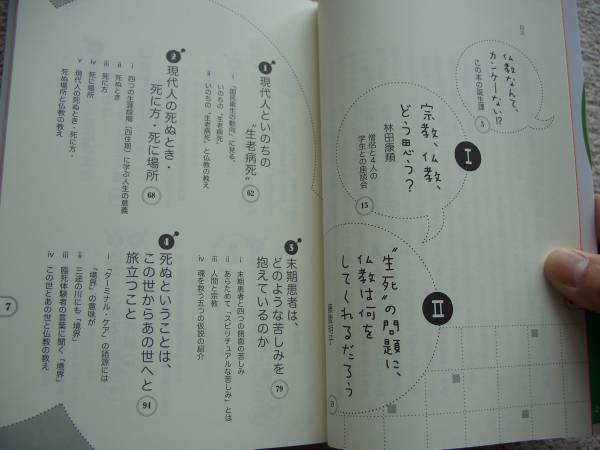 目次
仏教なんて、
カンケーない!?
この本の誕生譚
3
I
宗教、仏教、
どう思う?
林田康順
僧侶と4人の
学生との座談会
15
II
“生死”の問題に、
仏教は何を
してくれるだろう
1
現代人といのちの
“生老病死”
62
i 『国民衛生の動向』に見る、
いのちの「生老病死」
ii いのちの「生老病死」と仏教の教え
2
現代人の死ぬとき・
死に方・死に場所
68
i 四つの生涯段階（四住期）に学ぶ人生の意義
ii 死ぬとき
iii 死に方
iv 死に場所
v 現代人の死ぬとき・死に方・
死ぬ場所と仏教の教え
3
末期患者は、
どのような苦しみを
抱えているのか
79
i 末期患者と四つの側面の苦しみ
ii あらためて「スピリチュアルな苦しみ」とは
iii 人間と宗教
iv 魂を救う五つの仮説の紹介
4
死ぬということは、
この世からあの世へと
旅立つこと
94
i 「ターミナル・ケア」の語源には
「境界」の意味が
ii 三途の川にも「境界」
iii 臨死体験者の言葉に聞く「境界」
iv この世とあの世と仏教の教え
7